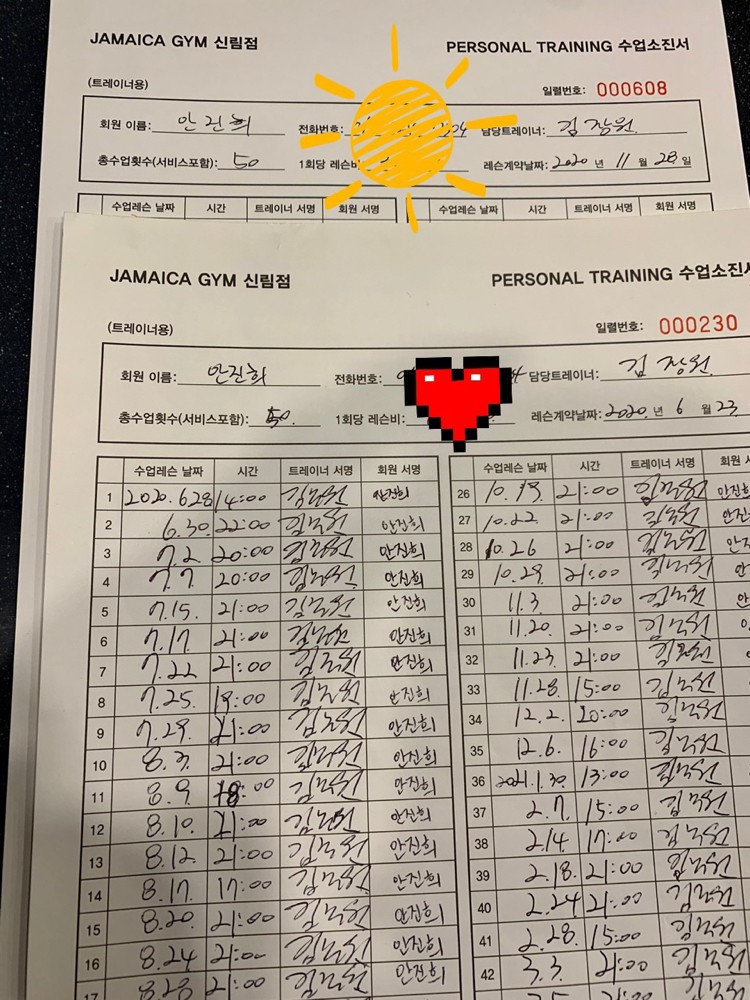 JAMAICA GYM 신림점 PERSONAL TRAINING 수업소진서
(트레이너용) 일렬번호: 000608
회원 이름: 안진희 전화번호: 담당트레이너: 김장원
총수업횟수(서비스포함): 50 1회당 레슨비 레슨계약날짜: 2020 년 11 월 28 일
수업레슨 날짜 시간 트레이너 서명 회원 서명 수업레슨 날짜 시간 트레이너 서명 회원 서명
JAMAICA GYM 신림점 PERSONAL TRAINING 수업소진서
(트레이너용) 일렬번호: 000230
회원 이름: 안진희 전화번호: 담당트레이너: 김장원
총수업횟수(서비스포함): 50. 1회당 레슨비: 레슨계약날짜: 2020. 년 6 월 23
수업레슨 날짜 시간 트레이너 서명 회원 서명 수업레슨 날짜 시간 트레이너 서명 회원
1 2020.6.28 14:00 김장원 안진희 26 10.19. 21:00 김장원 안진희
2 6.30. 22:00 김장원 안진희 27 10.22. 21:00 김장원 안진
3 7.2 20:00 김장원 안진희 28 10.26 21:00 김장원 안진
4 7.7 20:00 김장원 안진희 29 10.29. 21:00 김장원 안
5 7.15. 21:00 김장원 안진희 30 11.3. 21:00 김장원 안
6 7.17 21:00 김장원 안진희 31 11.20. 21:00 김장원
7 7.22 21:00 김장원 안진희 32 11.23. 21:00 김장원
8 7.25. 19:00 김장원 안진희 33 11.28. 15:00 김장원
9 7.29. 21:00 김장원 안진희 34 12.2. 20:00 김장원
10 8.3. 21:00 김장원 안진희 35 12.6. 16:00 김장원
11 8.9. 18:00 김장원 안진희 36 2021.1.30. 13:00 김장원
12 8.10. 21:00 김장원 안진희 37 2.7. 15:00 김장원
13 8.12. 21:00 김장원 안진희 38 2.14. 17:00 김장원
14 8.17. 17:00 김장원 안진희 39 2.18. 21:00 김장원
15 8.20. 21:00 김장원 안진희 40 2.24 21:00 김장원
16 8.24 21:00 김장원 안진희 41 2.28. 15:00 김장원
17 8.28 21:00 김장원 안진희 42 3.3. 21:00 김장원